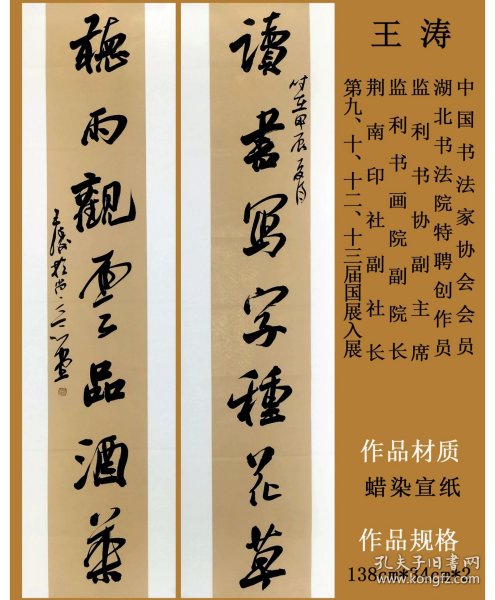 讀書寫字種花草
时在甲辰夏月
聽雨觀雲品酒茶
王涛
王涛
中国书法家协会会员
湖北书法院特聘创作员
监利书协副主席
监利书画院副院长
荆南印社副社长
第九、十、十二、十三届国展入展
作品材质
蜡染宣纸
作品规格
138cm*34cm*2
孔夫子旧书网
www.kongfz.com